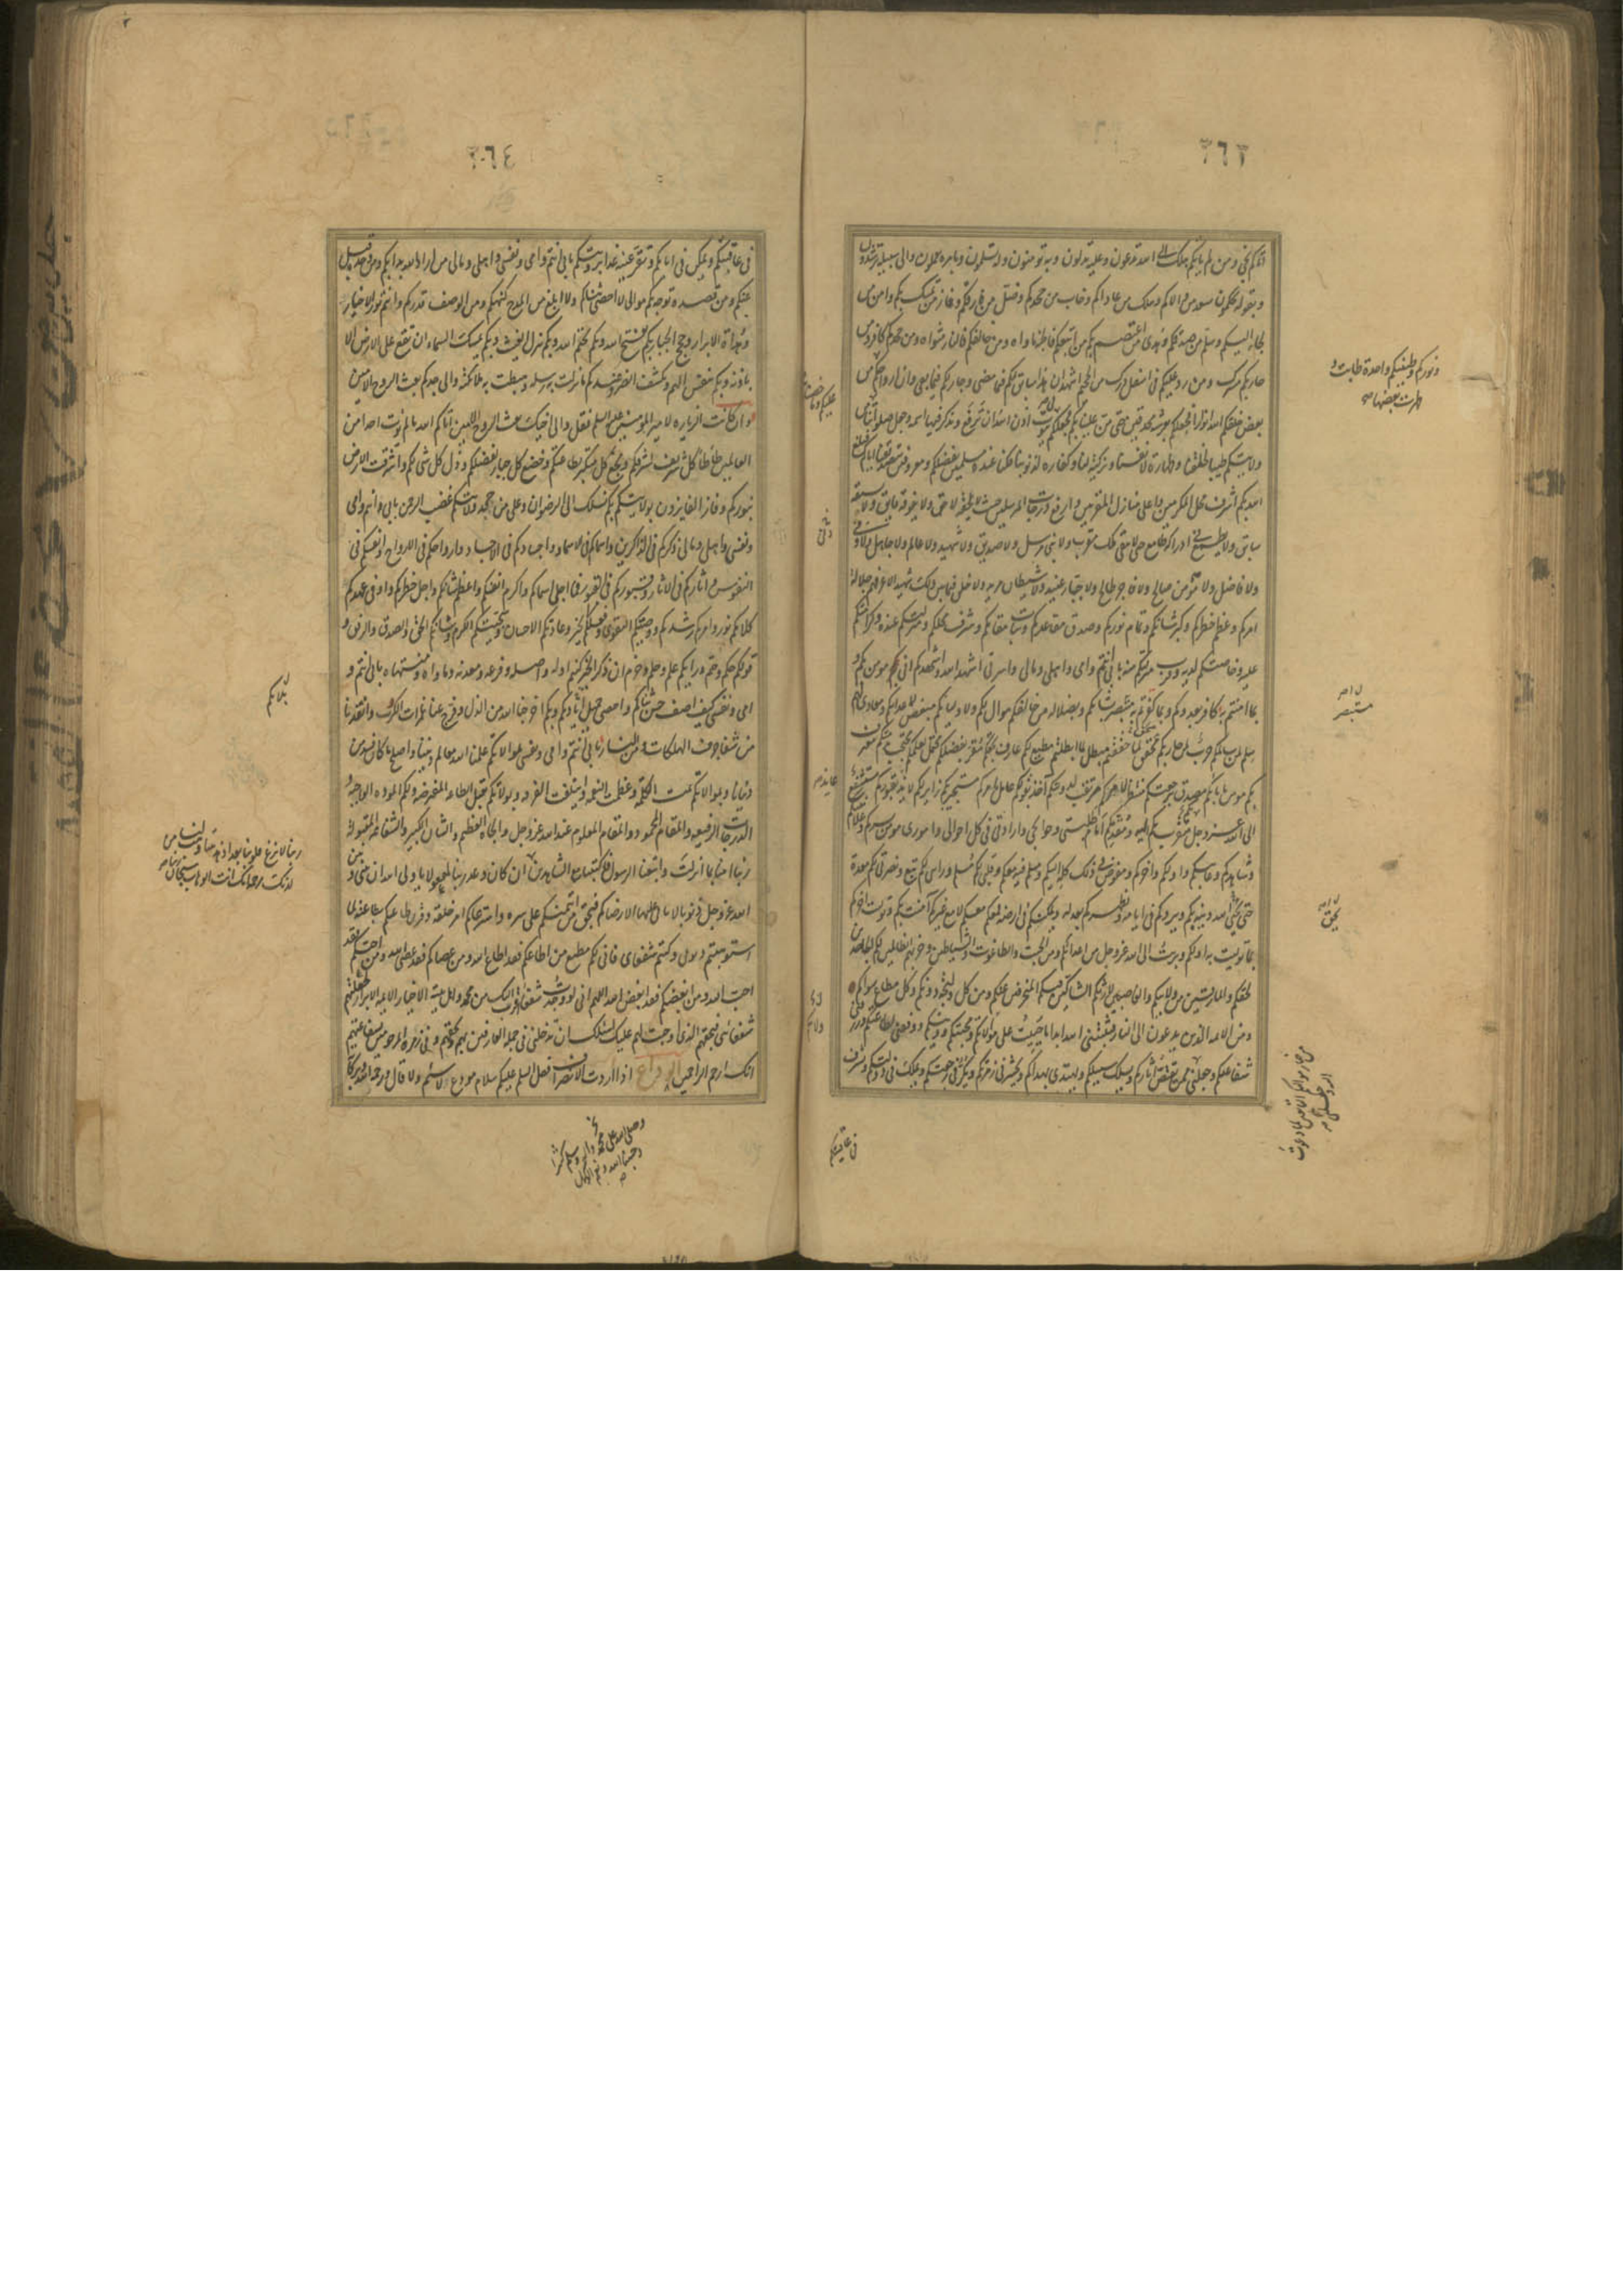 ٣٦٣
اتاكم نجى ومن لم ياتكم هلك الى الله تدعون وعليه تدلون وبه تومنون وله تسلمون وبامره تعملون والى سبيله ترشدون
وبقوله تحكمون سعد من والاكم وهلك من عاداكم وخاب من جحدكم وضل من فارقكم وفاز من تمسك بكم وامن من
لجا اليكم وسلم من صدقكم وهدى من اعتصم بكم من اتبعكم فالجنة ماواه ومن خالفكم فالنار مثواه ومن جحدكم كافر ومن
حاربكم مشرك ومن رد عليكم فى اسفل درك من الجحيم اشهد ان هذا سابق لكم فيما مضى وجار لكم فيما بقى وان ارواحكم
ونوركم وطينتكم واحدة طابت و
طهرت بعضها من
بعض خلقكم الله انوارا فجعلكم بعرشه محدقين حتى من علينا بكم فجعلكم فى بيوت اذن الله ان ترفع ويذكر فيها اسمه وجعل صلواتنا
عليكم وما خصنا
ولايتكم طيبا لخلقنا وطهارة لانفسنا وتزكية لنا وكفارة لذنوبنا فكنا عنده مسلمين بفضلكم ومعروفين بتصديقنا اياكم فبلغ
الله بكم اشرف محل المكرمين واعلى منازل المقربين وارفع درجات المرسلين حيث لا يلحقه لاحق ولا يفوقه فايق ولا يسبقه
سابق ولا يطمع فى ادراكه طامع حتى لا يبقى ملك مقرب ولا نبى مرسل ولا صديق ولا شهيد ولا عالم ولا جاهل ولا دنى
ولا فاضل ولا مومن صالح ولا فاجر طالح ولا جبار عنيد ولا شيطان مريد ولا خلق فيما بين ذلك شهيد الا عرفهم جلالة
امركم وعظم خطركم وكبر شانكم وتمام نوركم وصدق مقاعدكم وثبات مقامكم وشرف محلكم ومنزلتكم عنده وكرامتكم
عليه وخاصتكم لديه وقرب منزلتكم منه بابى انتم وامى واهلى ومالى واسرتى اشهد الله واشهدكم انى مومن بكم و
بما امنتم به كافر بعدوكم وبما كفرتم به مستبصر بشانكم وبضلالة من خالفكم موال لكم ولاوليائكم مبغض لاعدائكم ومعاد لهم
سلم لمن سالمكم حرب لمن حاربكم محقق لما حققتم مبطل لما ابطلتم مطيع لكم عارف بحقكم مقر بفضلكم محتمل لعلمكم محتجب بذمتكم معترف
بكم مومن بايابكم مصدق برجعتكم منتظر لامركم مرتقب لدولتكم آخذ بقولكم عامل بامركم مستجير بكم زائر لكم لائذ بقبوركم مستشفع
الى الله عز وجل بكم ومتقرب بكم اليه ومقدمكم امام طلبتى وحوائجى وارادتى فى كل احوالى وامورى مومن بسركم وعلانيتكم
وشاهدكم وغائبكم واولكم واخركم ومفوض فى ذلك كله اليكم ومسلم فيه معكم وقلبى لكم مسلم ورايى لكم تبع ونصرتى لكم معدة
حتى يحيى الله دينه بكم ويردكم فى ايامه ويظهركم لعدله ويمكنكم فى ارضه فمعكم معكم لا مع غيركم آمنت بكم وتوليت آخركم
بما توليت به اولكم وبرئت الى الله عز وجل من اعدائكم ومن الجبت والطاغوت والشياطين وحزبهم الظالمين لكم الجاحدين
لحقكم والمارقين من ولايتكم والغاصبين لارثكم الشاكين فيكم المنحرفين عنكم ومن كل وليجة دونكم وكل مطاع سواكم
ومن الائمة الذين يدعون الى النار فثبتنى الله ابدا ما حييت على موالاتكم ومحبتكم ودينكم ووفقنى لطاعتكم ورزقنى
شفاعتكم وجعلنى ممن يقتص آثاركم ويسلك سبيلكم ويهتدى بهداكم ويحشر فى زمرتكم ويكر فى رجعتكم ويملك فى دولتكم ويشرف
فى عافيتكم
٣٦٤
فى عافيتكم ويمكن فى ايامكم وتقر عينه غدا برويتكم بابى انتم وامى ونفسى واهلى ومالى من اراد الله بدا بكم ومن وحده قبل
عنكم ومن قصده توجه بكم موالى لا احصى ثناءكم ولا ابلغ من المدح كنهكم ومن الوصف قدركم وانتم نور الاخيار
وهداة الابرار وحجج الجبار بكم فتح الله وبكم يختم الله وبكم ينزل الغيث وبكم يمسك السماء ان تقع على الارض الا
باذنه وبكم ينفس الهم ويكشف الضر وعندكم ما نزلت به رسله وهبطت به ملائكته والى جدكم بعث الروح الامين
وان كانت الزيارة لامير المومنين عليه السلم فقل والى اخيك بعث الروح الامين اتاكم الله ما لم يوت احدا من
العالمين طاطا كل شريف لشرفكم وبخع كل متكبر لطاعتكم وخضع كل جبار لفضلكم وذل كل شى لكم واشرقت الارض
بنوركم وفاز الفايزون بولايتكم بكم يسلك الى الرضوان وعلى من جحد ولايتكم غضب الرحمن بابى انتم وامى
ونفسى واهلى ومالى ذكركم فى الذاكرين واسماؤكم فى الاسماء واجسادكم فى الاجساد وارواحكم فى الارواح وانفسكم فى
النفوس واثاركم فى الاثار وقبوركم فى القبور فما احلى اسماءكم واكرم انفسكم واعظم شانكم واجل خطركم واوفى عهدكم
كلامكم نور وامركم رشد ووصيتكم التقوى وفعلكم الخير وعادتكم الاحسان وسجيتكم الكرم وشانكم الحق والصدق والرفق و
قولكم حكم وحتم ورايكم علم وحلم وحزم ان ذكر الخير كنتم اوله واصله وفرعه ومعدنه وماواه ومنتهاه بابى انتم و
امى ونفسى كيف اصف حسن ثنائكم واحصى جميل بلائكم وبكم اخرجنا الله من الذل وفرج عنا غمرات الكروب وانقذنا
من شفا جرف الهلكات ومن النار بابى انتم وامى ونفسى بموالاتكم علمنا الله معالم ديننا واصلح ما كان فسد من
دنيانا وبموالاتكم تمت الكلمة وعظمت النعمة وايتلفت الفرقة وبموالاتكم تقبل الطاعة المفترضة ولكم المودة الواجبة
الدرجات الرفيعة والمقام المحمود والمقام المعلوم عند الله عز وجل والجاه العظيم والشان الكبير والشفاعة المقبولة
ربنا امنا بما انزلت واتبعنا الرسول فاكتبنا مع الشاهدين
ربنا لا تزغ قلوبنا بعد اذ هديتنا وهب لنا من
لدنك رحمة انك انت الوهاب سبحان ربنا
ان كان وعد ربنا لمفعولا يا ولى الله ان بينى وبين
الله عز وجل ذنوبا لا ياتى عليها الا رضاكم فبحق من ائتمنكم على سره واسترعاكم امر خلقه وقرن طاعتكم بطاعته لما
استوهبتم ذنوبى وكنتم شفعائى فانى لكم مطيع من اطاعكم فقد اطاع الله ومن عصاكم فقد عصى الله ومن احبكم فقد
احب الله ومن ابغضكم فقد ابغض الله اللهم انى لو وجدت شفعاء اقرب اليك من محمد واهل بيته الاخيار الائمة الابرار لجعلتهم
شفعائى فبحقهم الذى اوجبت لهم عليك اسئلك ان تدخلنى فى جملة العارفين بهم وبحقهم وفى زمرة المرحومين بشفاعتهم
انك ارحم الراحمين الوداع اذا اردت الانصراف فقل السلم عليكم سلام مودع لا سئم ولا قال ورحمة الله وبركاته
وصلى الله على محمد واله وسلم كثيرا
وحسبنا الله ونعم الوكيل